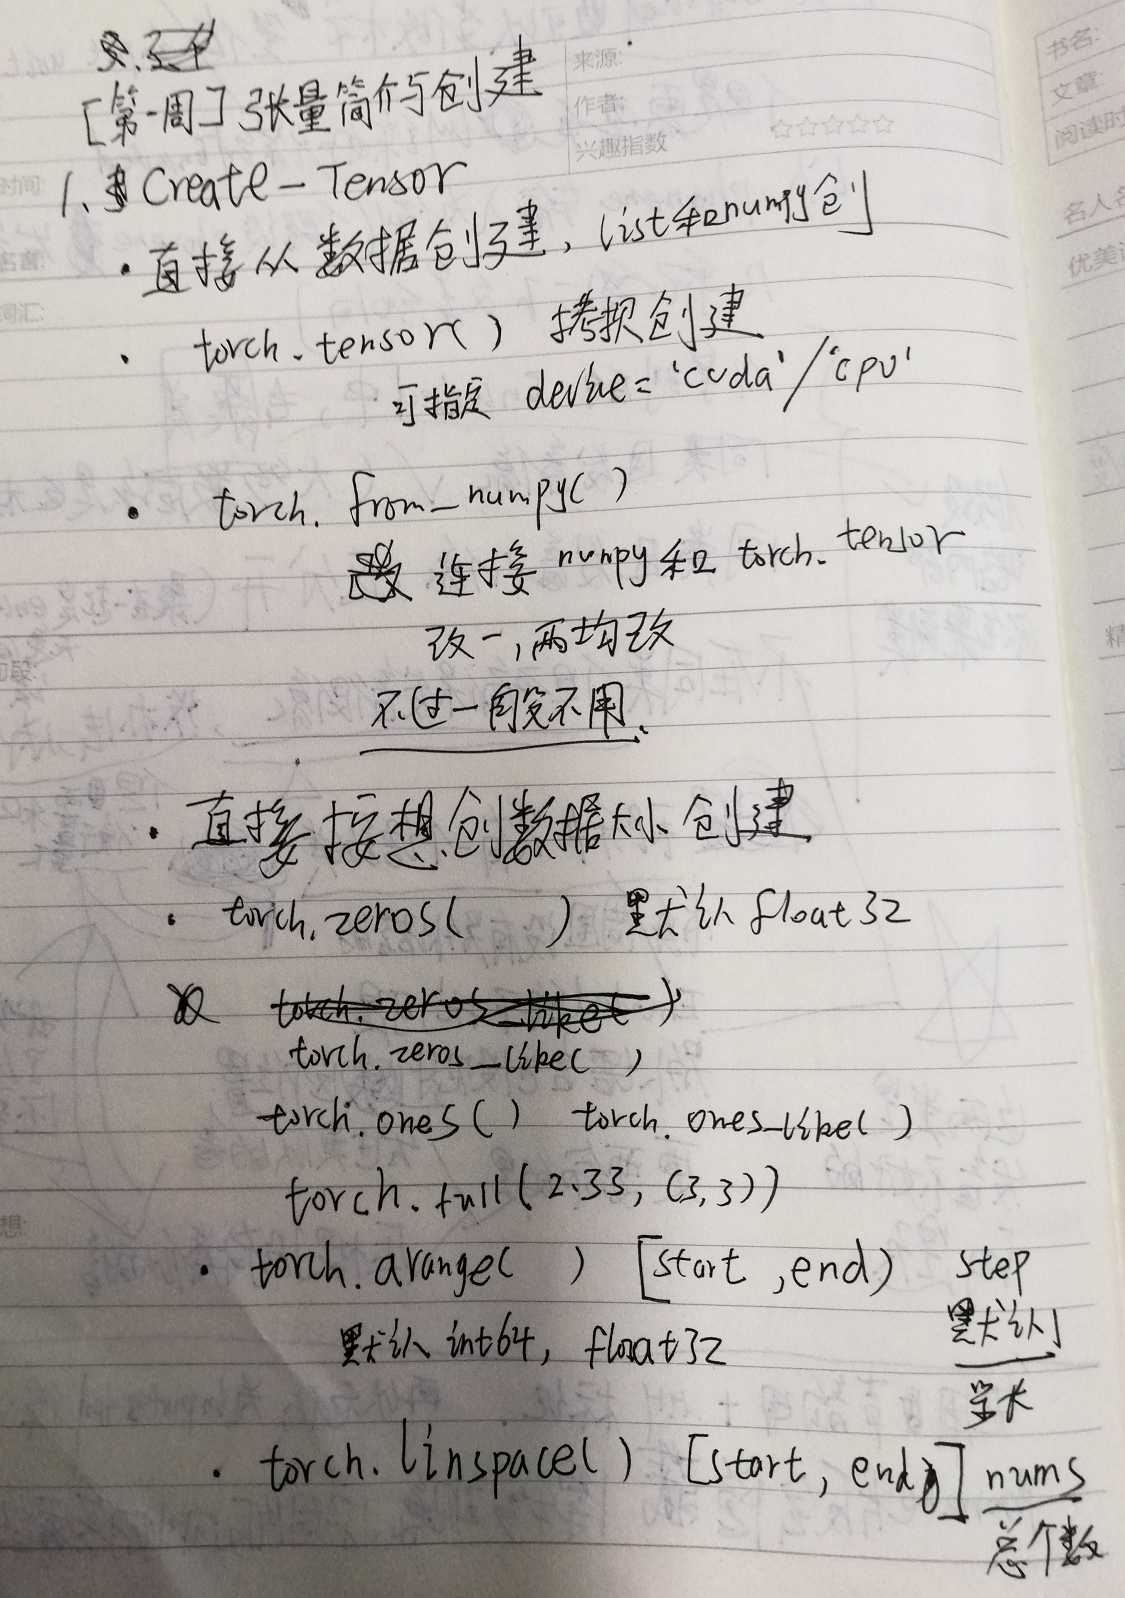 来源:
书名:
[第一周] 张量简介与创建
作者:
文章:
兴趣指数 ☆☆☆☆☆
阅读时
1. Create-Tensor
时间:
名人名
· 直接从数据创建, list和numpy创
优美语
词汇:
· torch.tensor() 拷贝创建
可指定 device='cuda'/'cpu'
· torch.from_numpy()
连接 numpy和 torch.tensor
改一,两均改
精
不过一般不用.
· 直接按想创数据大小创建
· torch.zeros( ) 默认float32
torch.zeros_like()
torch.zeros_like( )
torch.ones() torch.ones_like()
torch.full(2.33, (3,3))
想:
· torch.arange( ) [start ,end) step
默认 int64, float32 默认1
· torch.linspace() [start, end] nums
总个数